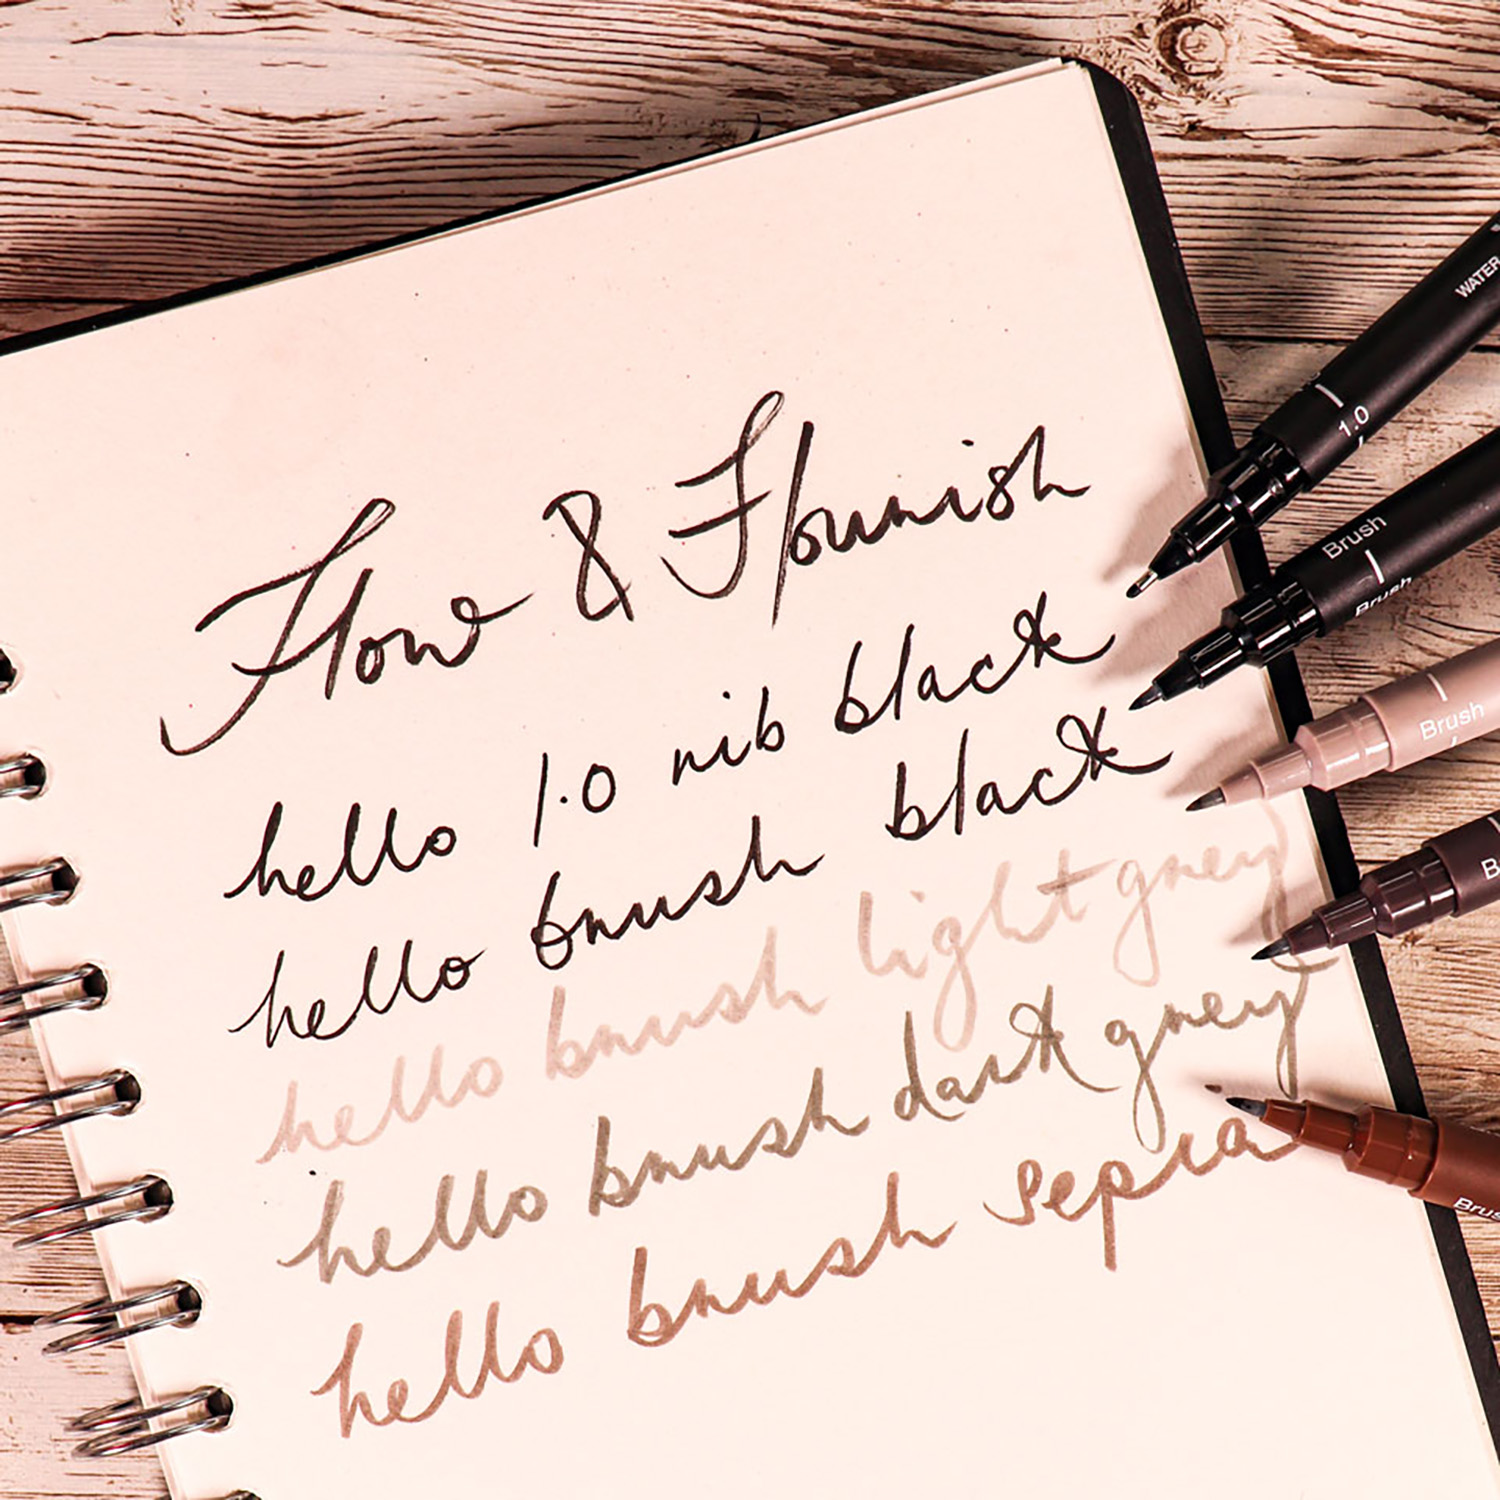 Flow & Flourish
hello 1.0 nib black
hello brush black
hello brush light grey
hello brush dark grey
hello brush sepia
WATER
1.0
Brush
Brush
Brush